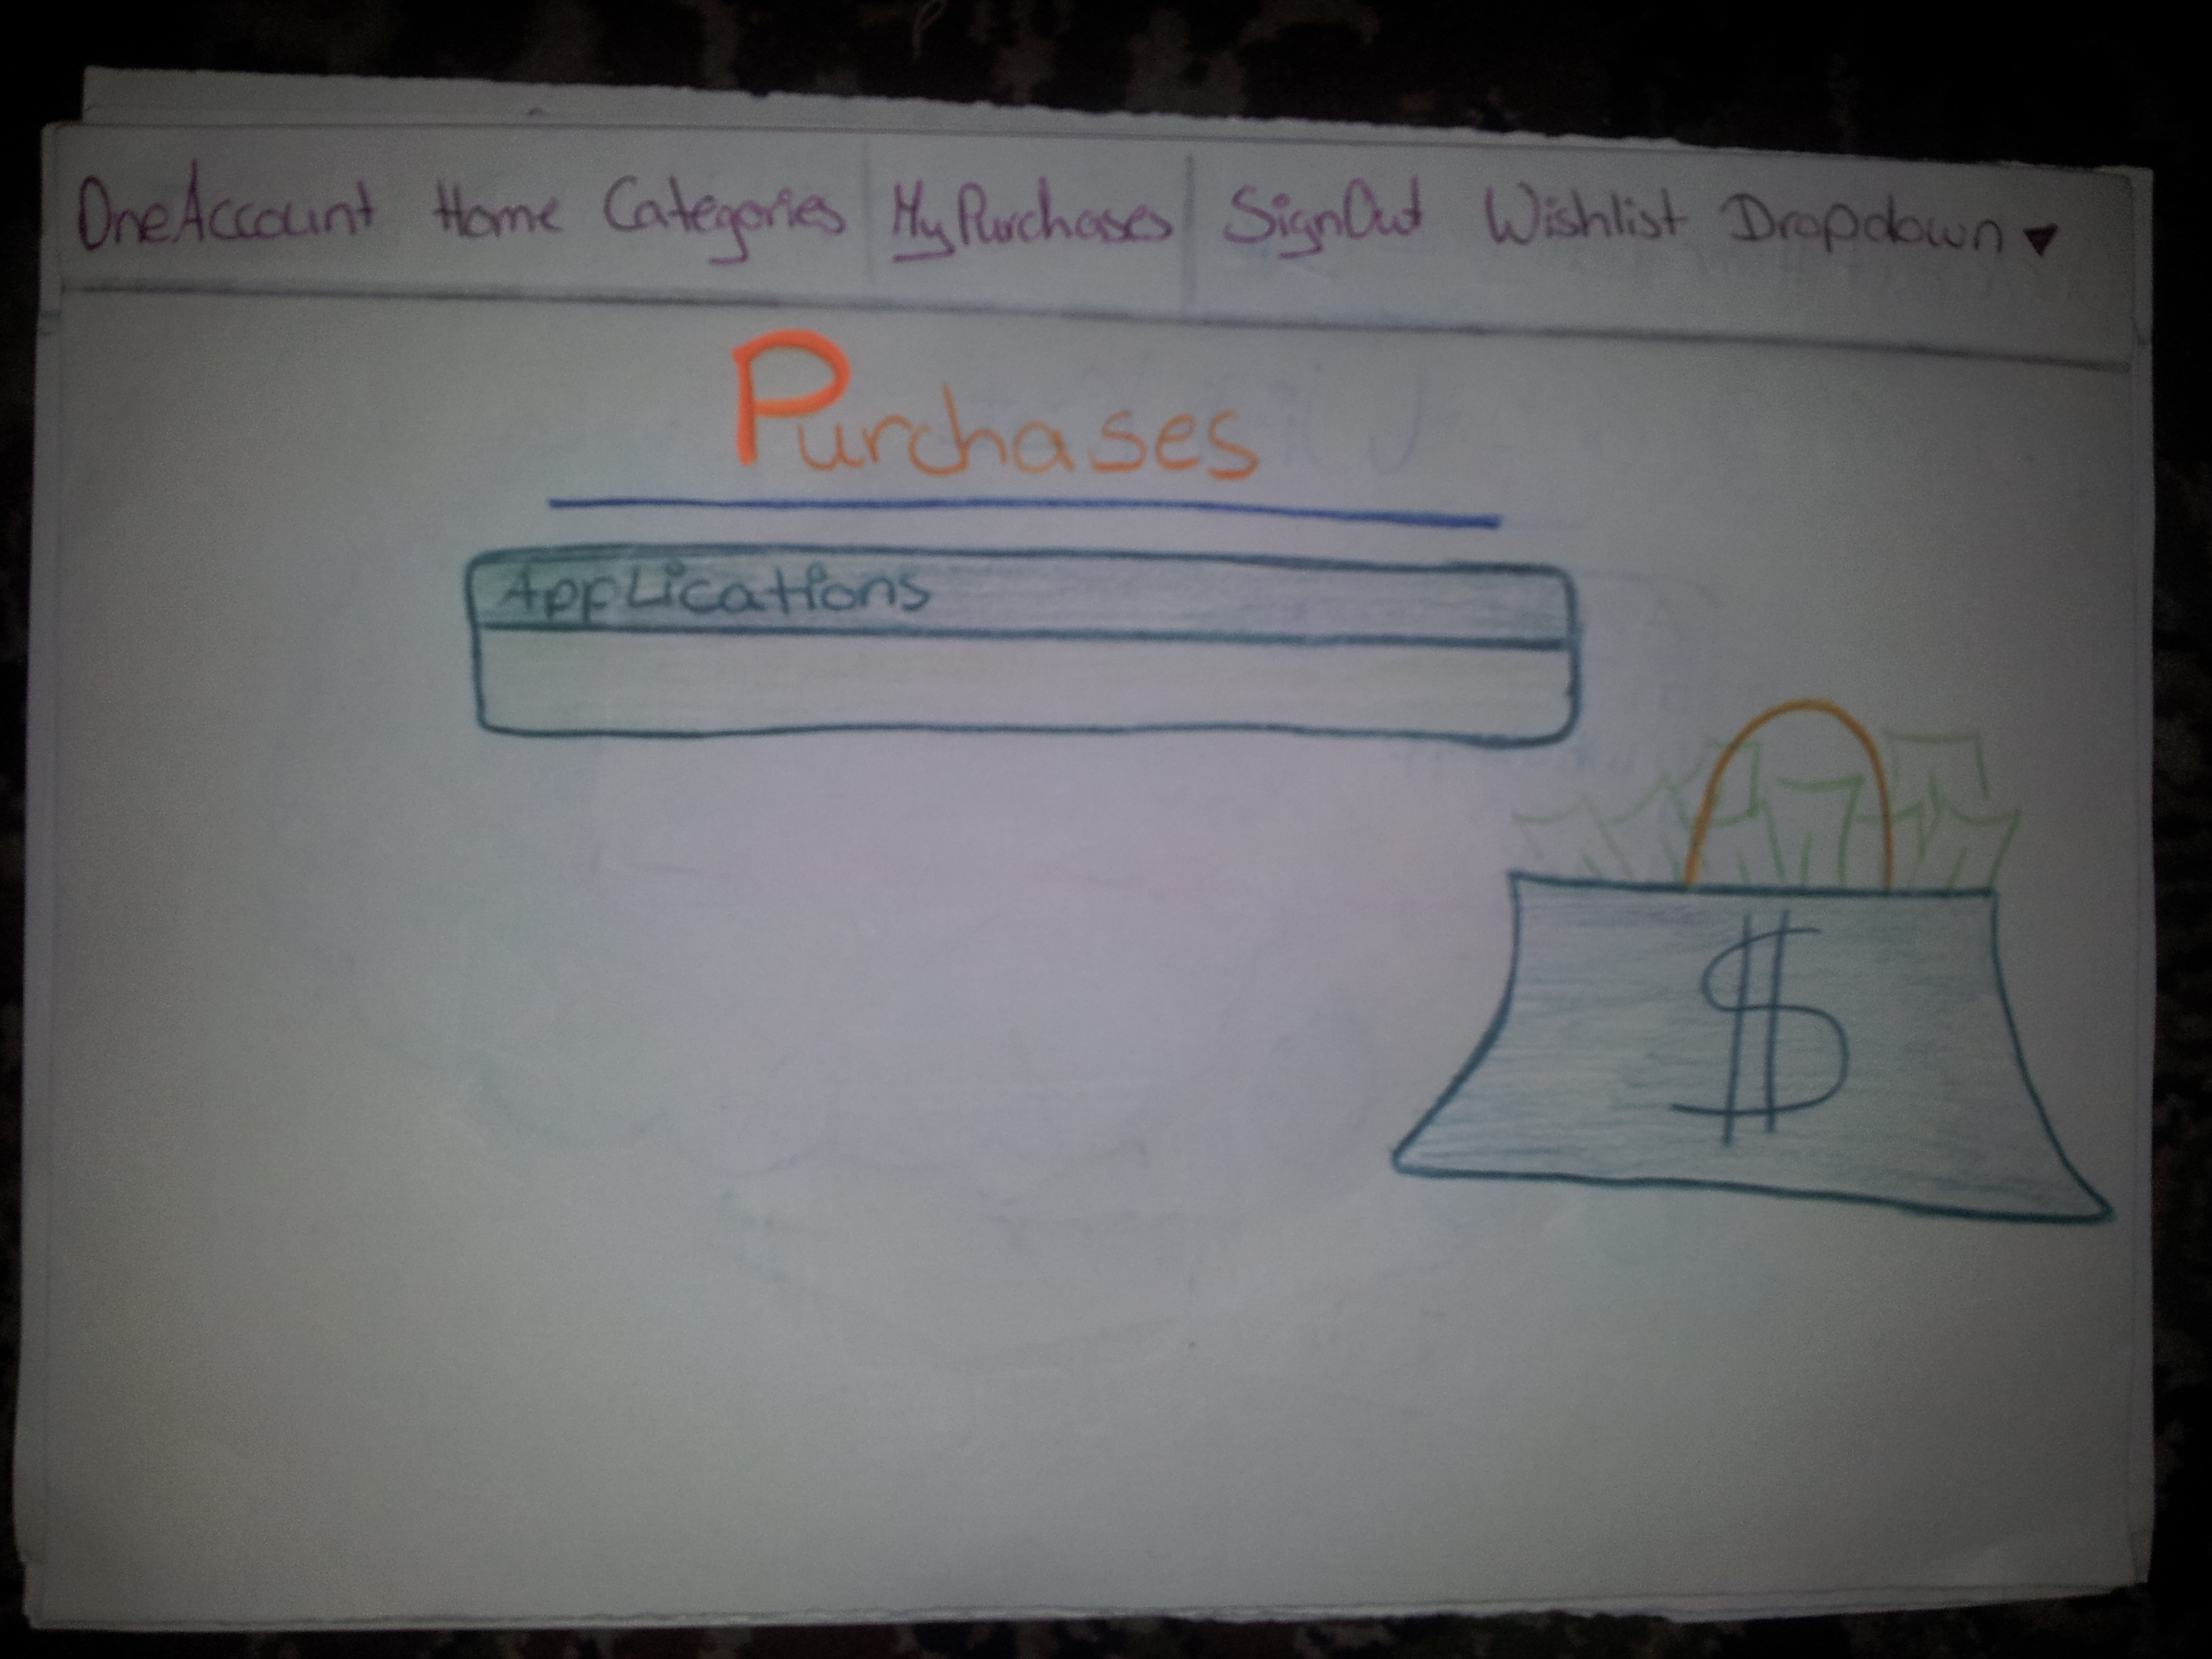 OneAccount Home Categories MyPurchases SignOut Wishlist Dropdown ▼
Purchases
Applications
$